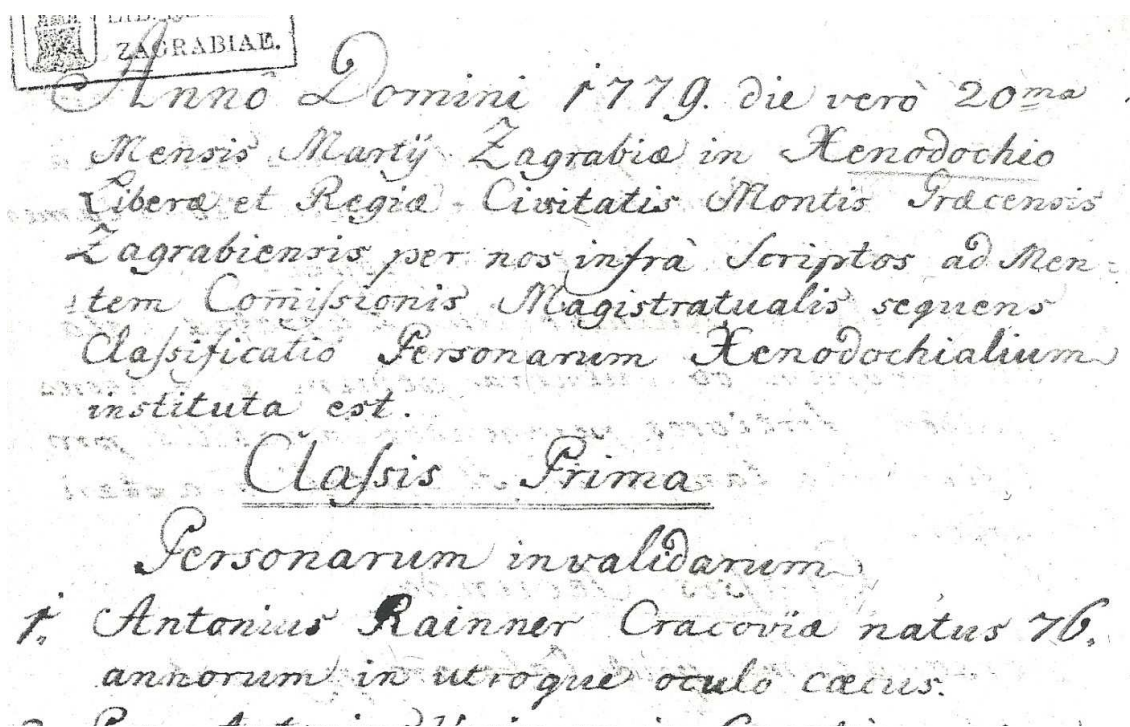 ZAGRABIAE.
Annô Domini 1779. die verò 20ma
Mensis Martij Zagrabiæ in Xenodochio
Liberæ et Regiæ Civitatis Montis Græcensis
Zagrabiensis per nos infrà Scriptos ad Men=
tem Comiſsionis Magistratualis sequens
Claſsificatio Personarum Xenodochialium
instituta est.
Claſsis Prima
Personarum invalidarum
1. Antonius Rainner Cracoviæ natus 76.
annorum in utroque oculo cæcus.